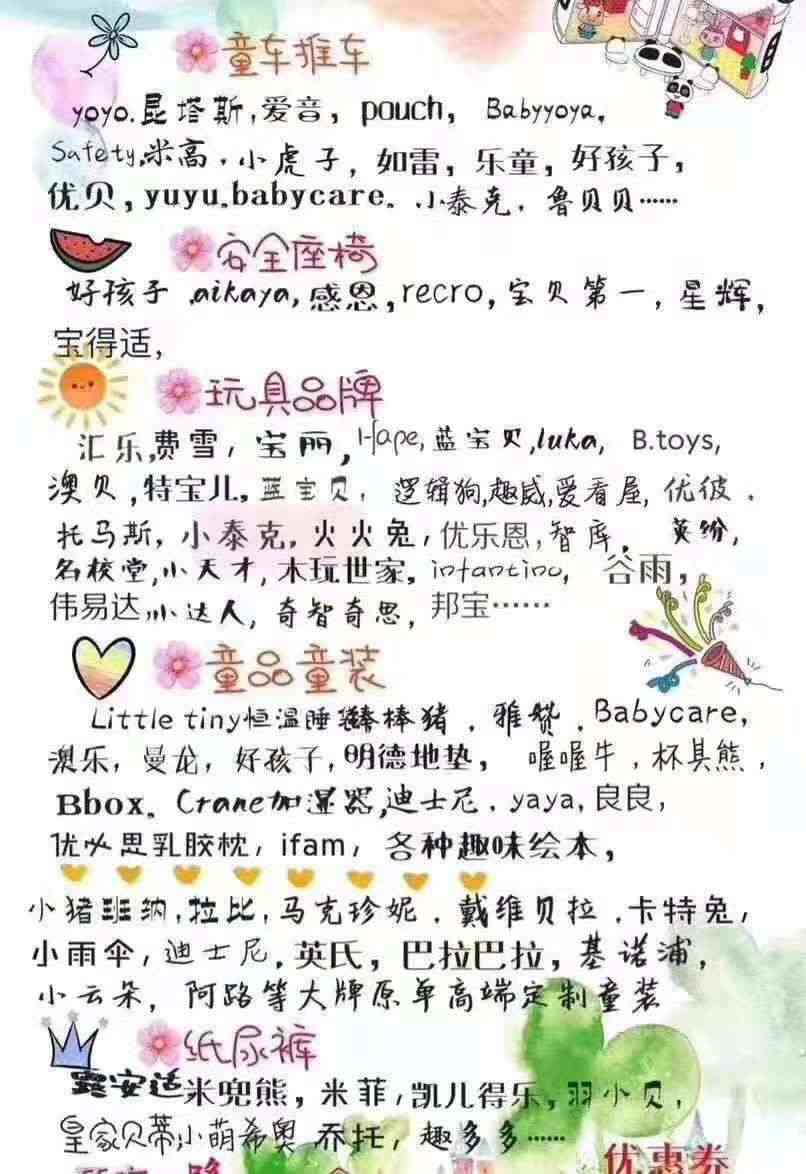 童车推车
yoyo.昆塔斯,爱音,pouch,Babyyoya,
Safety,米高,小虎子,如雷,乐童,好孩子,
优贝,yuyu.babycare。小泰克,鲁贝贝……
安全座椅
好孩子,aikaya,感恩,recro,宝贝第一,星辉,
宝得适,
玩具品牌
汇乐,费雪,宝丽,Hape,蓝宝贝,luka,B.toys,
澳贝,特宝儿,蓝宝贝,逻辑狗,趣威,爱看屋,优彼.
托马斯,小泰克,火火兔,优乐恩,智库,英纷,
名校堂,小天才,木玩世家,infantino,谷雨,
伟易达,小达人,奇智奇思,邦宝……
童品童装
Little tiny恒温睡袋棒棒猪.雅赞.Babycare,
澳乐,曼龙,好孩子,明德地垫,喔喔牛.杯具熊,
Bbox。Crane加湿器,迪士尼.yaya,良良,
优必思乳胶枕,ifam,各种趣味绘本,
小猪班纳,拉比,马克珍妮.戴维贝拉.卡特兔,
小雨伞,迪士尼,英氏,巴拉巴拉,基诺浦,
小云朵,阿路等大牌原单高端定制童装
纸尿裤
露安适米兜熊,米菲,凯儿得乐,羽小贝,
皇家贝蒂,小萌希奥 乔托,趣多多……
优惠券